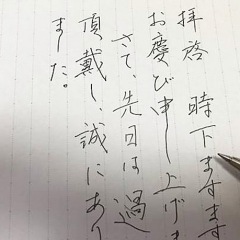 拝啓　時下ますます
お慶び申し上げま
さて、先日は過
頂戴し、誠にあり
ました。